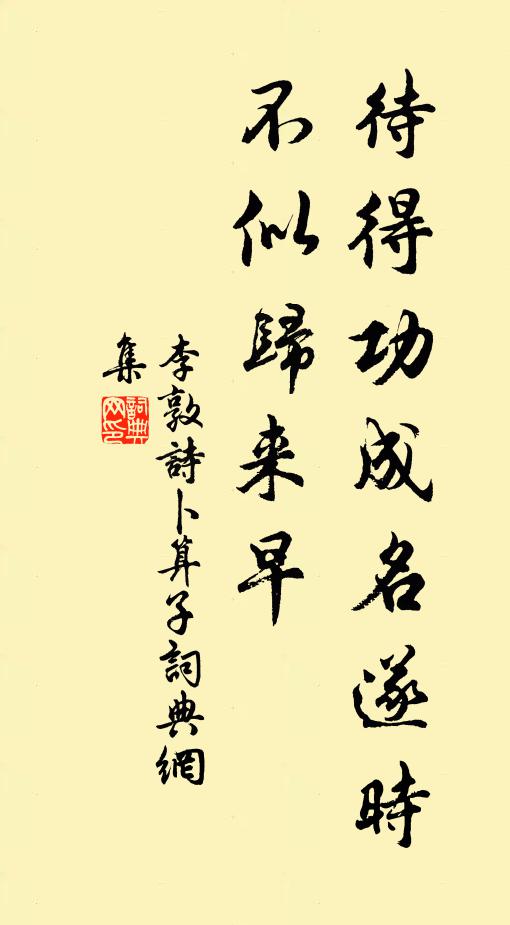 待得功成名遂時
不似歸来早
李敦詩卜算子詞典網
集
詞典
网印